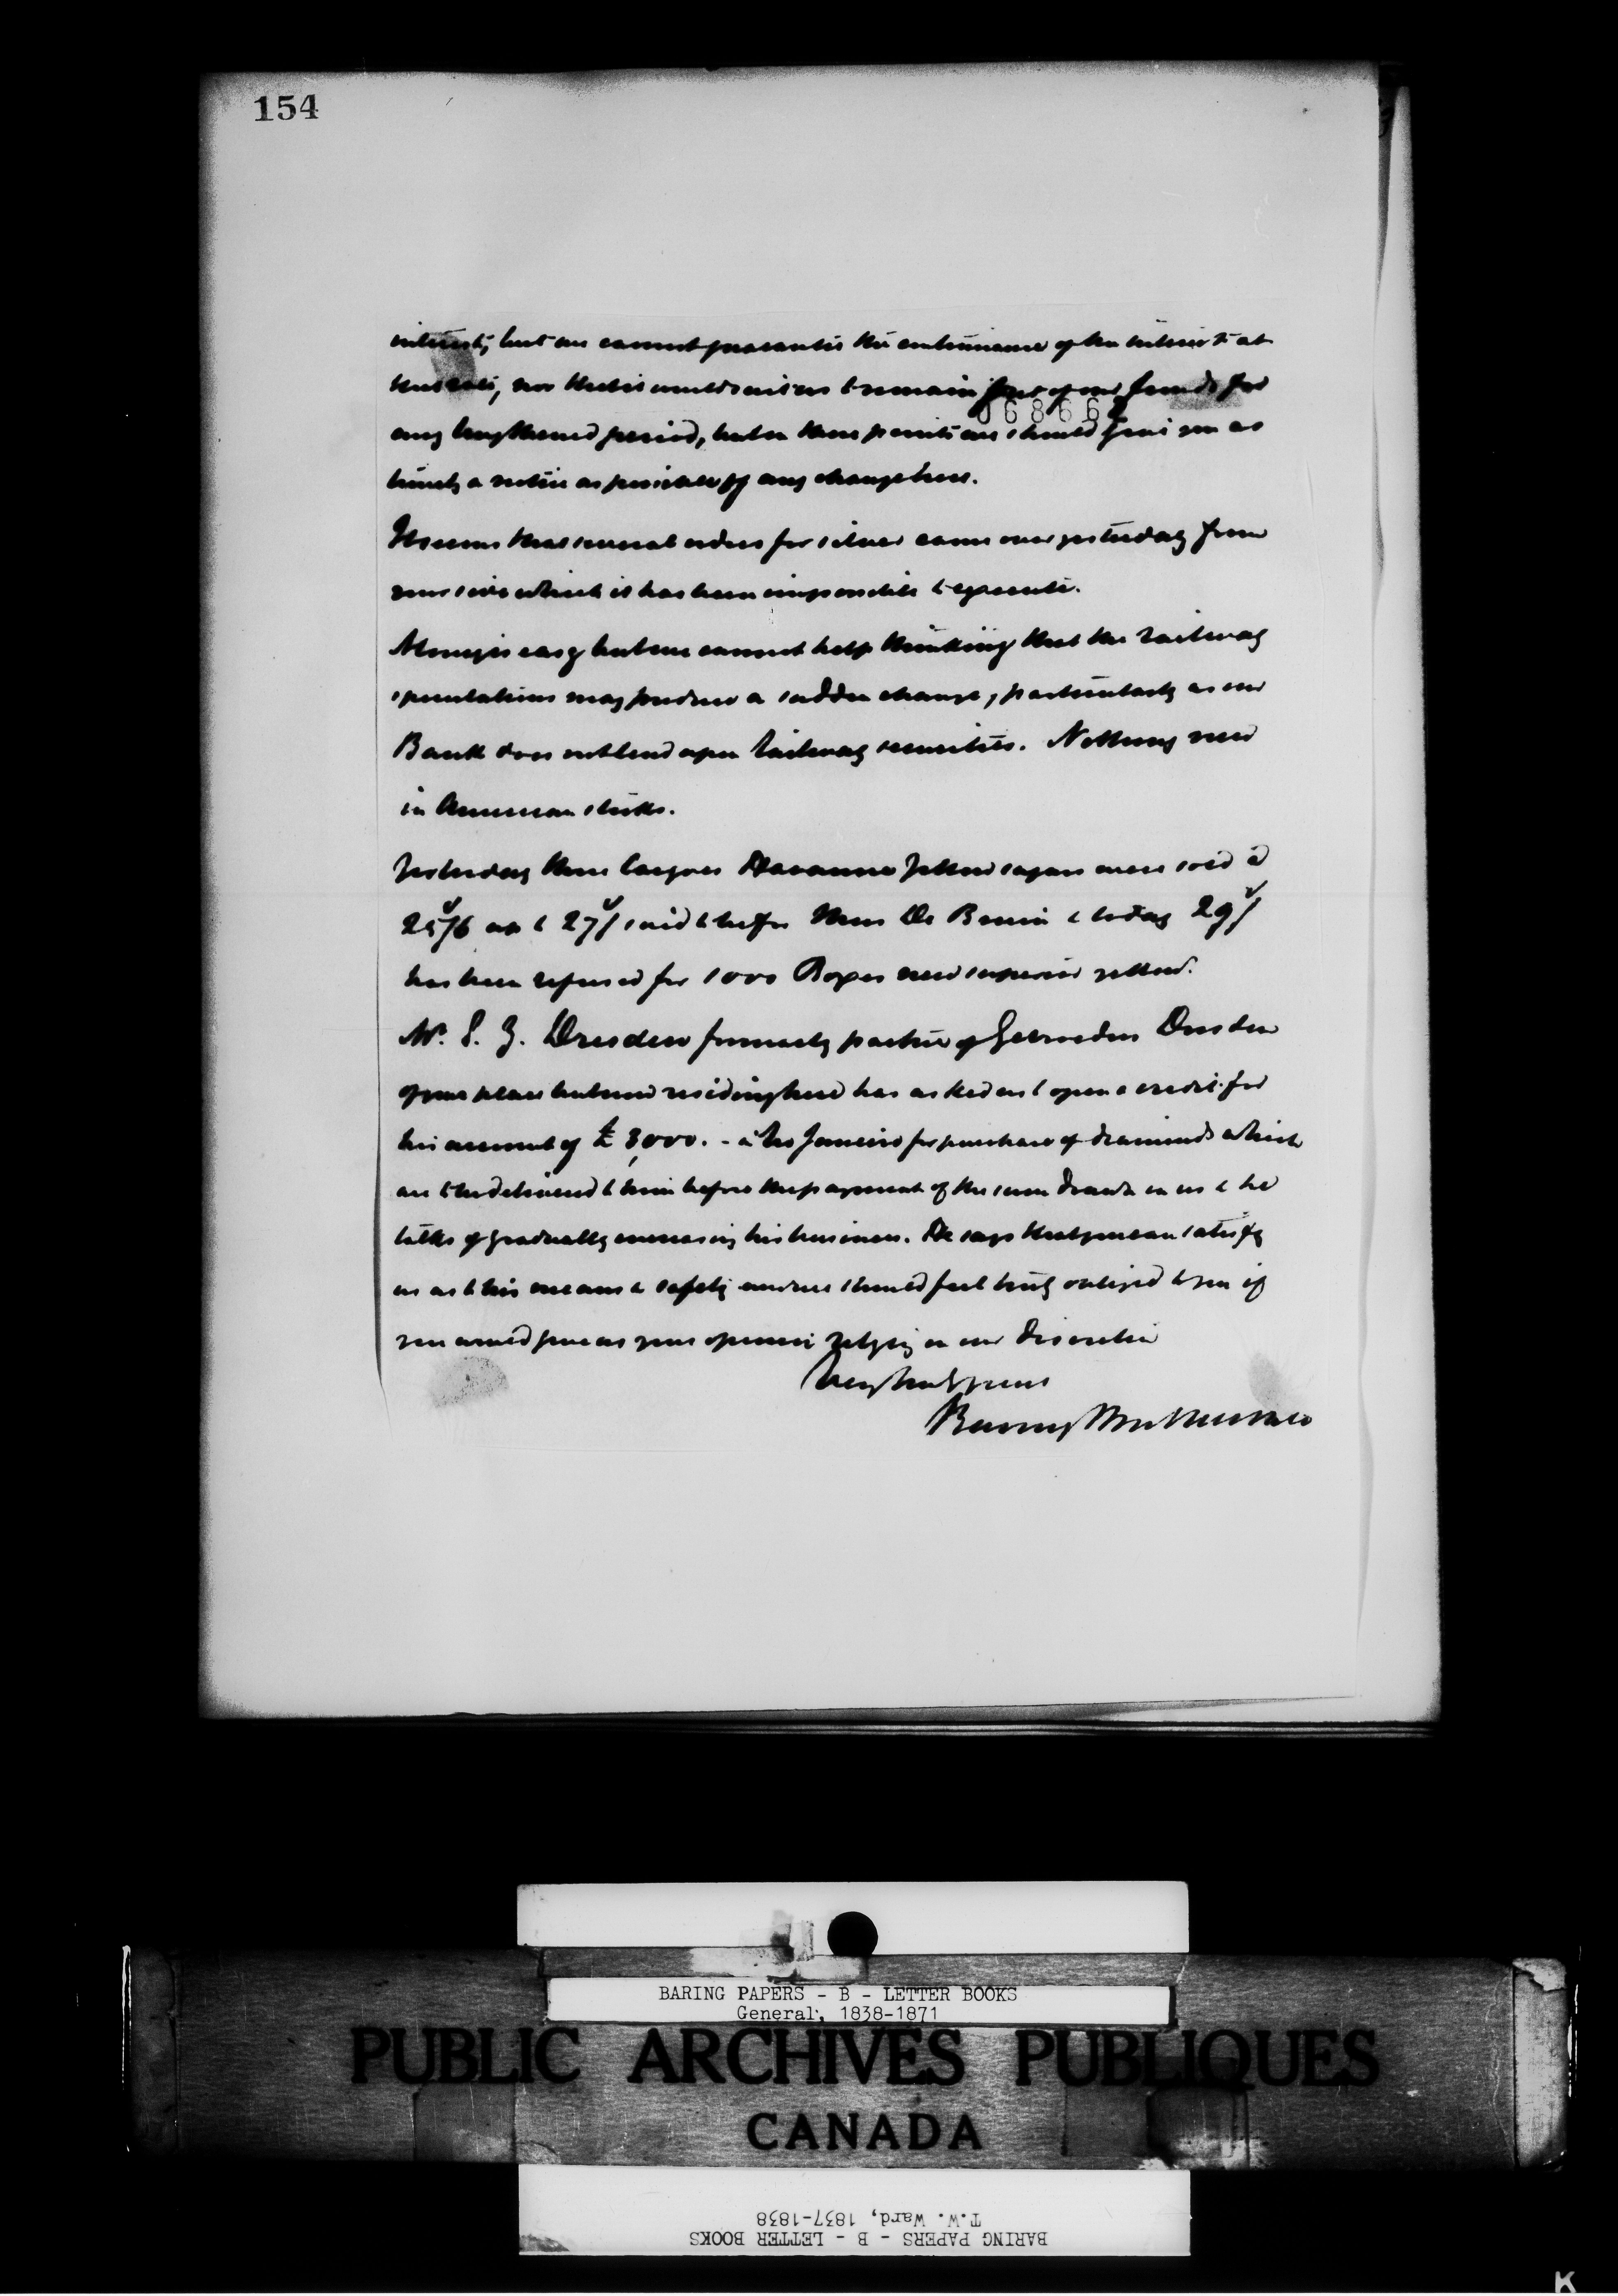 154
interest, but we cannot guarantee the continuance of the interest at
that rate, nor that it would suit us to remain of our funds for
068662
any lengthened period, but on these points we should give you as
timely a notice as possible of any change here.
It seems that several orders for silver came over yesterday from
your side which it has been impossible to execute.
Money is easy but we cannot help thinking that the railway
speculations may produce a sudden change, particularly as our
Bank does not lend upon railway securities. Nothing new
in American stocks.
Yesterday three Cargoes Havanna Yellow sugars were sold à
25/6 to 27/ said to be for Mess De Bruin & today 29/
has been refused for 1000 Boxes new superior yellow.
Mr. S. J. Dresden formerly partner of Gebroeders Dresden
of your place but now residing here has asked us to open a credit for
his account of £ 3,000. - à Rio Janeiro for purchase of diamonds which
are to be delivered to him before the payment of the sum drawn on us & he
talks of gradually increasing his business. He says that you can satisfy
us as to his means & safety and we should feel truly obliged to you if
you would give us your opinion relying on our discretion
Very truly yours
Baring Brothers & Co
BARING PAPERS - B - LETTER BOOKS
General, 1838-1871
PUBLIC ARCHIVES PUBLIQUES
CANADA
BARING PAPERS - B - LETTER BOOKS
T.W. Ward, 1837-1838
K